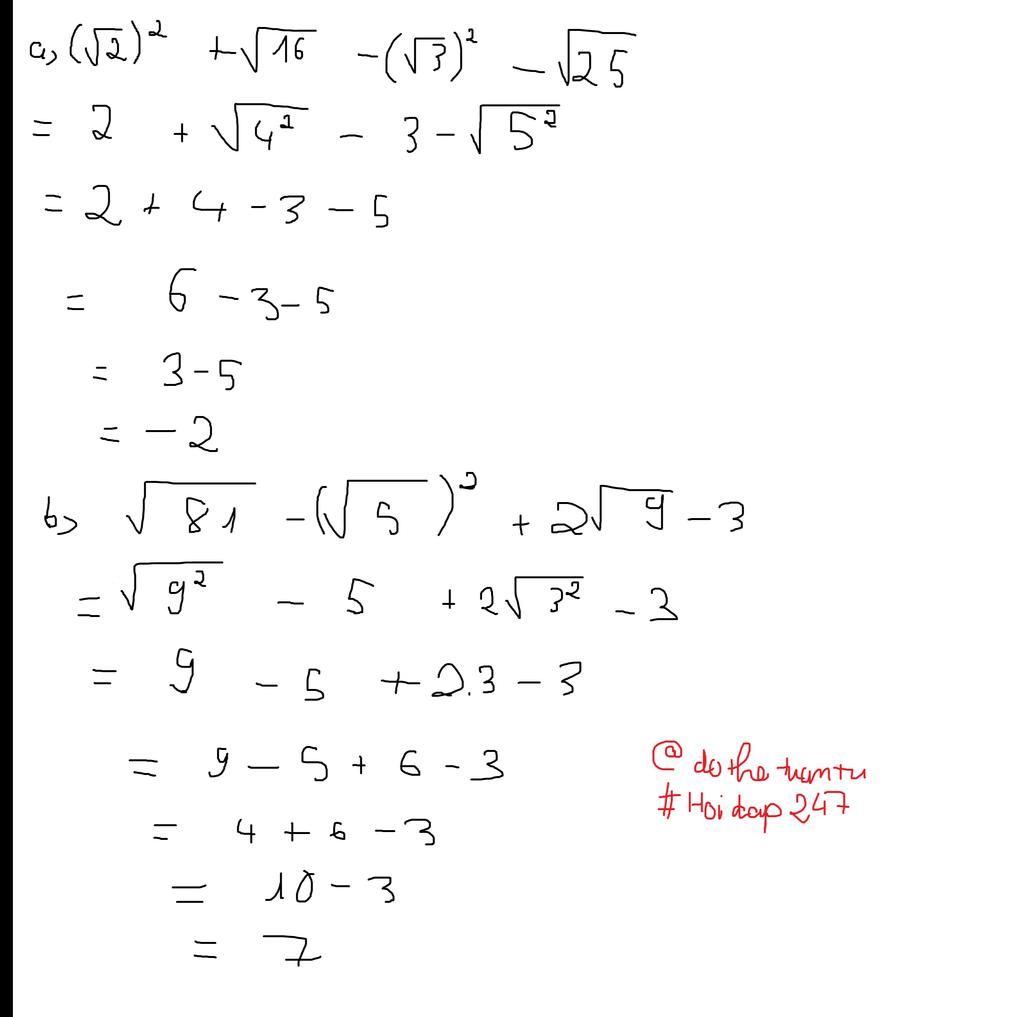 a, (√2)² + √16 - (√3)² - √25
= 2 + √4² - 3 - √5²
= 2 + 4 - 3 - 5
= 6 - 3 - 5
= 3 - 5
= - 2
b, √81 - (√5)² + 2√9 - 3
= √9² - 5 + 2√3² - 3
= 9 - 5 + 2.3 - 3
= 9 - 5 + 6 - 3
= 4 + 6 - 3
= 10 - 3
= 7
@ do the tuan tu
# Hoi dap 247